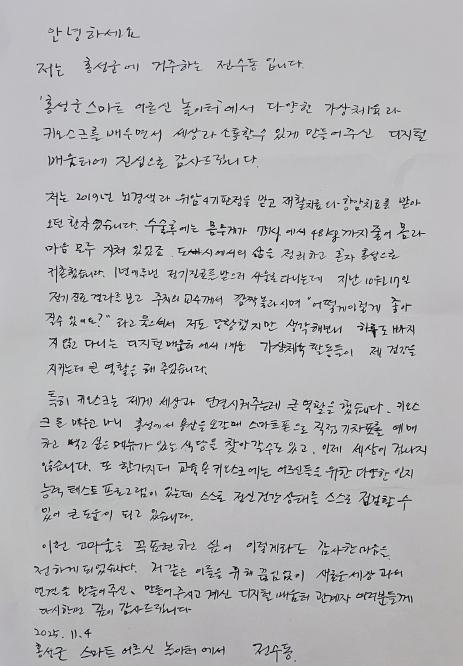 안녕하세요
저는 홍성군에 거주하는 전수동 입니다.
'홍성군 스마트 어르신 놀이터'에서 다양한 가상체육과
키오스크를 배우면서 세상과 소통할수 있게 만들어주신 디지털
배움터에 진심으로 감사드립니다.
저는 2019년 뇌경색과 위암4기판정을 받고 재활치료와 항암치료를 받아
오던 환자였습니다. 수술후에는 몸무게가 73kg에서 48kg까지 줄어 몸과
마음 모두 지쳐 있었죠. 도시에서의 삶을 정리하고 혼자 홍성으로
귀촌했습니다. 1년에 두번 정기진료를 받으러 서울로 다니는데 지난 10월17일
정기진료 결과를 보고 주치의 교수께서 깜짝놀라시며 "어떻게이렇게 좋아
질수 있어요?" 라고 물으셔서 저도 당황했지만 생각해보니 하루도 빠지
지 않고 다니는 디지털 배움터에서 배운 가상체육 활동들이 제 건강을
지키는데 큰 역할을 해 주었습니다.
특히 키오스크는 제게 세상과 연결시켜주는데 큰 역할을 했습니다. 키오스
크를 배우고 나니 홍성에서 용산을 오갈때 스마트폰으로 직접 기차표를 예매
하고 먹고 싶은 메뉴가 있는 식당을 찾아갈수도 있고, 이제 세상이 겁나지
않습니다. 또 한가지더 교육용 키오스크에는 어르신들을 위한 다양한 인지
능력 테스트 프로그램이 있는데 스스로 정신건강 상태를 스스로 점검할 수
있어 큰 도움이 되고 있습니다.
이런 고마움을 꼭 표현하고 싶어 이렇게라도 감사한 마음을
전하게 되었습니다. 저같은 이들을 위해 끊임없이 새로운 세상과의
연결을 만들어주신, 만들어주시고 계신 디지털 배움터 관계자 여러분들께
다시한번 깊이 감사드립니다
2025. 11. 4
홍성군 스마트 어르신 놀이터에서 전수동.